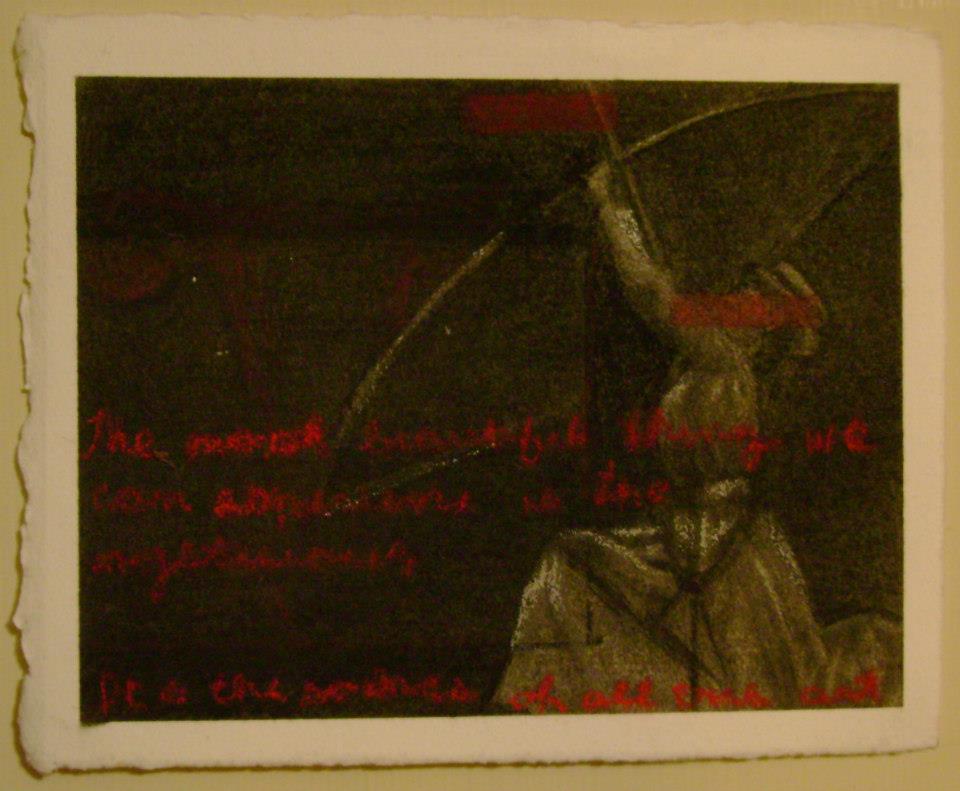 The most beautiful thing we
can experience is the
mysterious,
It is the source of all true art